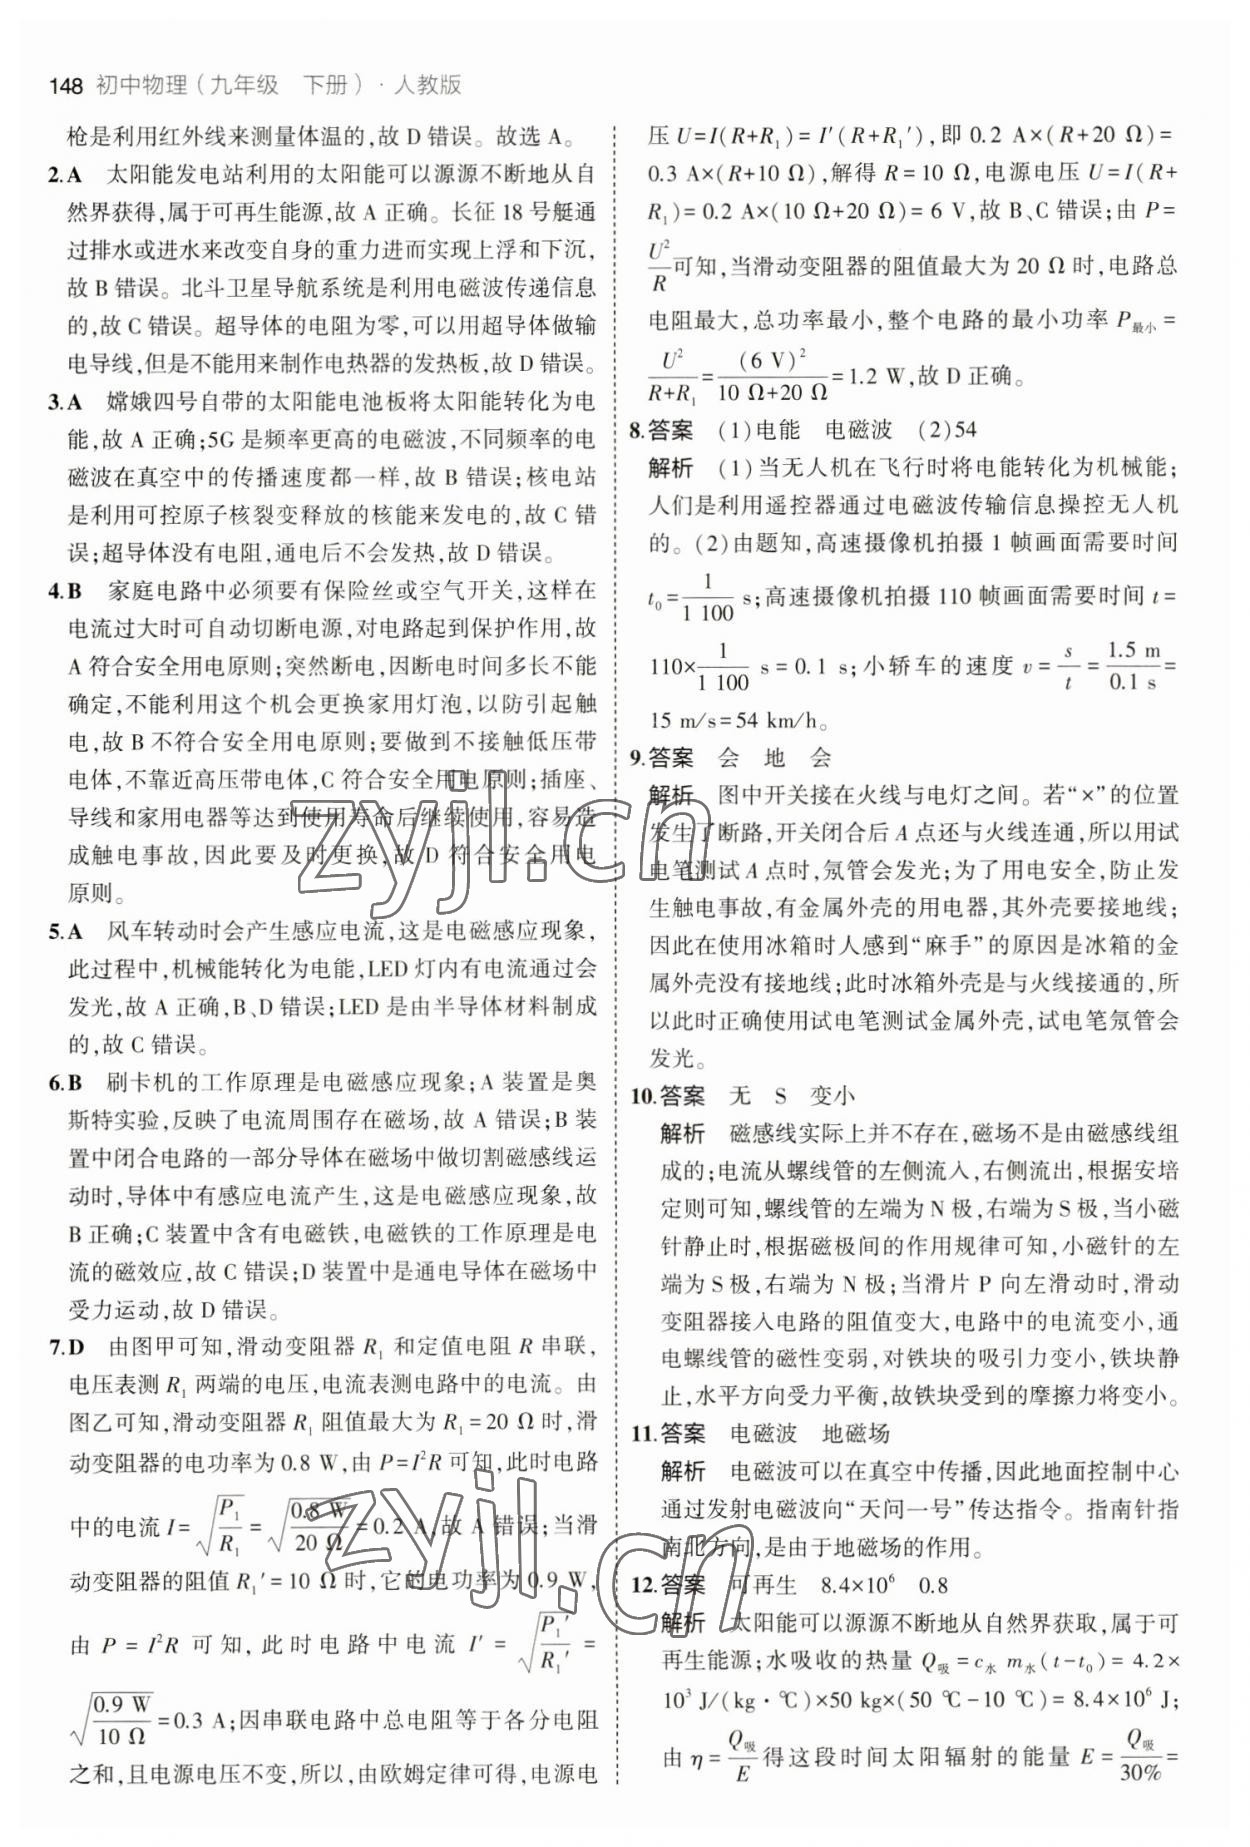 148 初中物理(九年级 下册)·人教版
枪是利用红外线来测量体温的,故 D 错误。故选 A。
2.A 太阳能发电站利用的太阳能可以源源不断地从自
然界获得,属于可再生能源,故 A 正确。长征 18 号艇通
过排水或进水来改变自身的重力进而实现上浮和下沉,
故 B 错误。北斗卫星导航系统是利用电磁波传递信息
的,故 C 错误。超导体的电阻为零,可以用超导体做输
电导线,但是不能用来制作电热器的发热板,故 D 错误。
3.A 嫦娥四号自带的太阳能电池板将太阳能转化为电
能,故 A 正确;5G 是频率更高的电磁波,不同频率的电
磁波在真空中的传播速度都一样,故 B 错误;核电站
是利用可控原子核裂变释放的核能来发电的,故 C 错
误;超导体没有电阻,通电后不会发热,故 D 错误。
4.B 家庭电路中必须要有保险丝或空气开关,这样在
电流过大时可自动切断电源,对电路起到保护作用,故
A 符合安全用电原则;突然断电,因断电时间多长不能
确定,不能利用这个机会更换家用灯泡,以防引起触
电,故 B 不符合安全用电原则;要做到不接触低压带
电体,不靠近高压带电体,C 符合安全用电原则;插座、
导线和家用电器等达到使用寿命后继续使用,容易造
成触电事故,因此要及时更换,故 D 符合安全用电
原则。
5.A 风车转动时会产生感应电流,这是电磁感应现象,
此过程中,机械能转化为电能,LED 灯内有电流通过会
发光,故 A 正确,B、D 错误;LED 是由半导体材料制成
的,故 C 错误。
6.B 刷卡机的工作原理是电磁感应现象;A 装置是奥
斯特实验,反映了电流周围存在磁场,故 A 错误;B 装
置中闭合电路的一部分导体在磁场中做切割磁感线运
动时,导体中有感应电流产生,这是电磁感应现象,故
B 正确;C 装置中含有电磁铁,电磁铁的工作原理是电
流的磁效应,故 C 错误;D 装置中是通电导体在磁场中
受力运动,故 D 错误。
7.D 由图甲可知,滑动变阻器 R₁ 和定值电阻 R 串联,
电压表测 R₁ 两端的电压,电流表测电路中的电流。由
图乙可知,滑动变阻器 R₁ 阻值最大为 R₁=20 Ω 时,滑
动变阻器的电功率为 0.8 W,由 P=I²R 可知,此时电路
中的电流 I=√(P₁/R₁)=√(0.8 W/20 Ω)=0.2 A,故 A 错误;当滑
动变阻器的阻值 R₁′=10 Ω 时,它的电功率为 0.9 W,
由 P=I²R 可知,此时电路中电流 I′=√(P₁′/R₁′)=
√(0.9 W/10 Ω)=0.3 A;因串联电路中总电阻等于各分电阻
之和,且电源电压不变,所以,由欧姆定律可得,电源电
压 U=I(R+R₁)=I′(R+R₁′),即 0.2 A×(R+20 Ω)=
0.3 A×(R+10 Ω),解得 R=10 Ω,电源电压 U=I(R+
R₁)=0.2 A×(10 Ω+20 Ω)=6 V,故 B、C 错误;由 P=
U²/R可知,当滑动变阻器的阻值最大为 20 Ω 时,电路总
电阻最大,总功率最小,整个电路的最小功率 P最小=
U²/(R+R₁)=(6 V)²/(10 Ω+20 Ω)=1.2 W,故 D 正确。
8.答案 (1)电能 电磁波 (2)54
解析 (1)当无人机在飞行时将电能转化为机械能;
人们是利用遥控器通过电磁波传输信息操控无人机
的。(2)由题知,高速摄像机拍摄 1 帧画面需要时间
t₀=1/1 100 s;高速摄像机拍摄 110 帧画面需要时间 t=
110×1/1 100 s=0.1 s;小轿车的速度 v=s/t=1.5 m/0.1 s=
15 m/s=54 km/h。
9.答案 会 地 会
解析 图中开关接在火线与电灯之间。若“×”的位置
发生了断路,开关闭合后 A 点还与火线连通,所以用试
电笔测试 A 点时,氖管会发光;为了用电安全,防止发
生触电事故,有金属外壳的用电器,其外壳要接地线;
因此在使用冰箱时人感到“麻手”的原因是冰箱的金
属外壳没有接地线;此时冰箱外壳是与火线接通的,所
以此时正确使用试电笔测试金属外壳,试电笔氖管会
发光。
10.答案 无 S 变小
解析 磁感线实际上并不存在,磁场不是由磁感线组
成的;电流从螺线管的左侧流入,右侧流出,根据安培
定则可知,螺线管的左端为 N 极,右端为 S 极,当小磁
针静止时,根据磁极间的作用规律可知,小磁针的左
端为 S 极,右端为 N 极;当滑片 P 向左滑动时,滑动
变阻器接入电路的阻值变大,电路中的电流变小,通
电螺线管的磁性变弱,对铁块的吸引力变小,铁块静
止,水平方向受力平衡,故铁块受到的摩擦力将变小。
11.答案 电磁波 地磁场
解析 电磁波可以在真空中传播,因此地面控制中心
通过发射电磁波向“天问一号”传达指令。指南针指
南北方向,是由于地磁场的作用。
12.答案 可再生 8.4×10⁶ 0.8
解析 太阳能可以源源不断地从自然界获取,属于可
再生能源;水吸收的热量 Q吸=c水 m水(t-t₀)=4.2×
10³ J/(kg·℃)×50 kg×(50 ℃-10 ℃)=8.4×10⁶ J;
由 η=Q吸/E得这段时间太阳辐射的能量 E=Q吸/30%=
zyjl.cn
zyjl.cn